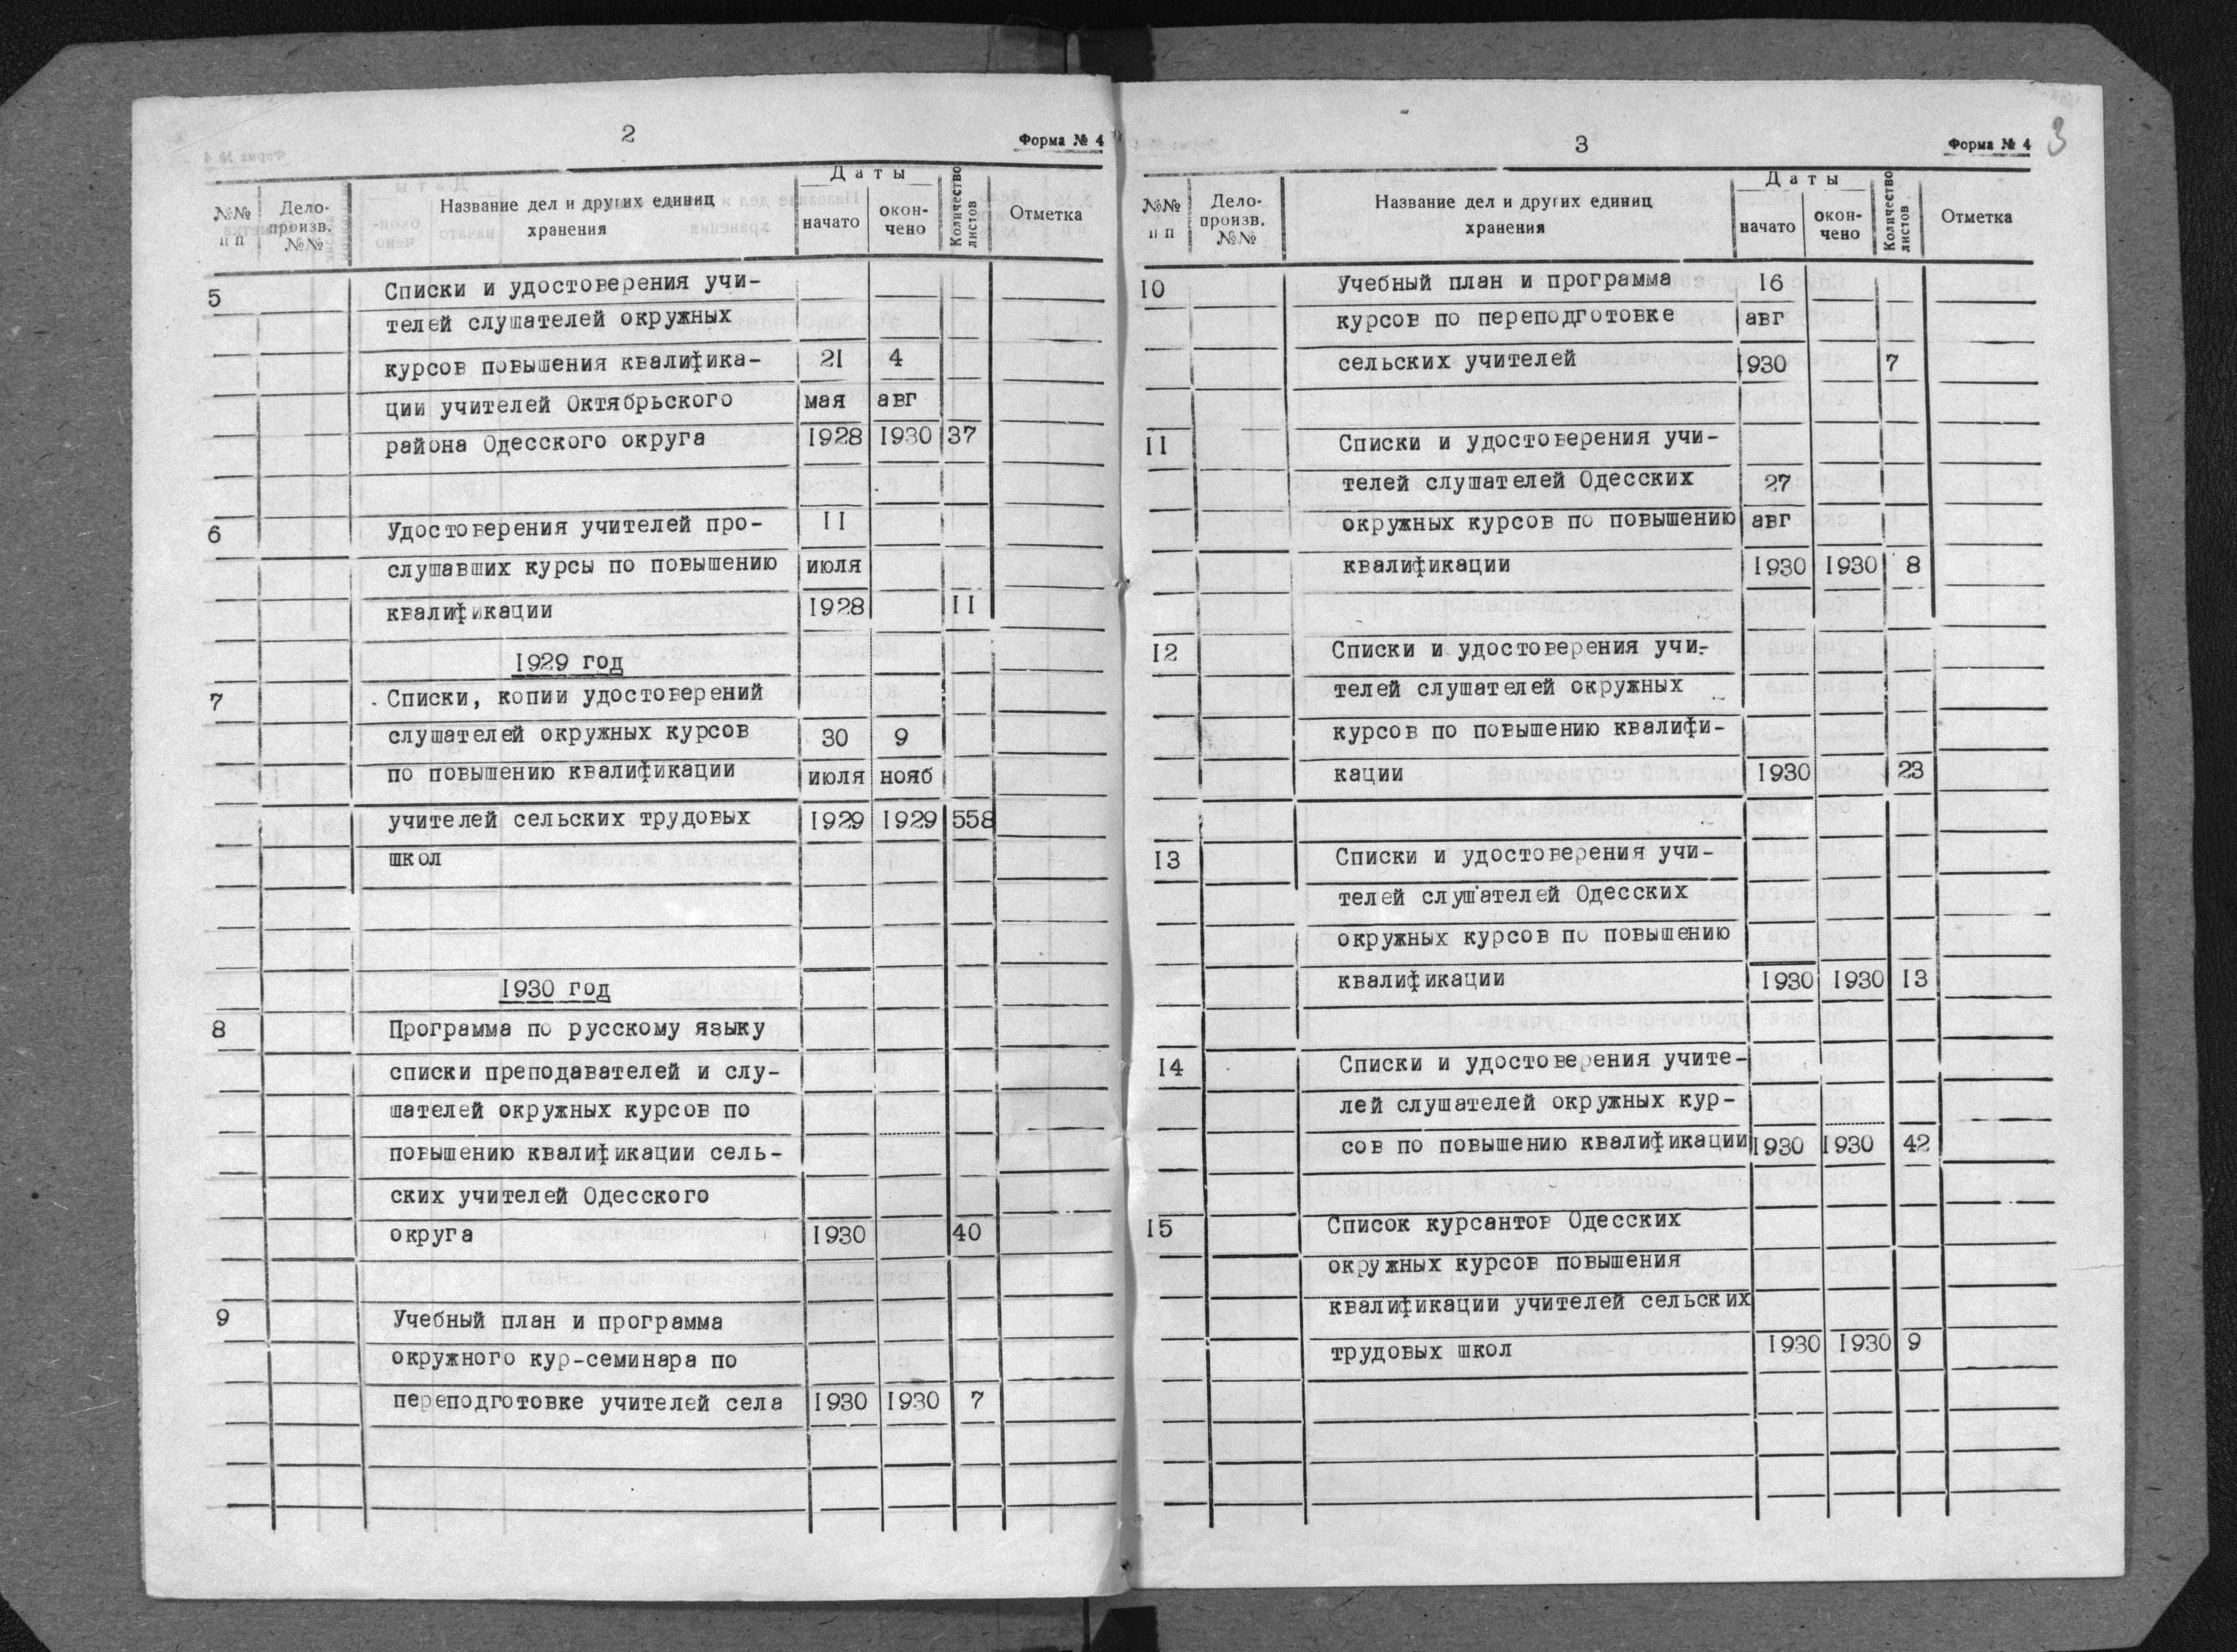 2
Форма № 4
№№ п п
Дело-произв. №№
Название дел и других единиц хранения
Даты
начато
окон-чено
Количество листов
Отметка
5 Списки и удостоверения учи-
телей слушателей окружных
курсов повышения квалифика- 21 4
ции учителей Октябрьского мая авг
района Одесского округа 1928 1930 37
6 Удостоверения учителей про- 11
слушавших курсы по повышению июля
квалификации 1928 11
1929 год
7 Списки, копии удостоверений
слушателей окружных курсов 30 9
по повышению квалификации июля нояб
учителей сельских трудовых 1929 1929 558
школ
1930 год
8 Программа по русскому языку
списки преподавателей и слу-
шателей окружных курсов по
повышению квалификации сель-
ских учителей Одесского
округа 1930 40
9 Учебный план и программа
окружного кур-семинара по
переподготовке учителей села 1930 1930 7
3
Форма № 4
3
№№ п п
Дело-произв. №№
Название дел и других единиц хранения
Даты
начато
окон-чено
Количество листов
Отметка
10 Учебный план и программа 16
курсов по переподготовке авг
сельских учителей 1930 7
11 Списки и удостоверения учи-
телей слушателей Одесских 27
окружных курсов по повышению авг
квалификации 1930 1930 8
12 Списки и удостоверения учи-
телей слушателей окружных
курсов по повышению квалифи-
кации 1930 23
13 Списки и удостоверения учи-
телей слушателей Одесских
окружных курсов по повышению
квалификации 1930 1930 13
14 Списки и удостоверения учите-
лей слушателей окружных кур-
сов по повышению квалификации 1930 1930 42
15 Список курсантов Одесских
окружных курсов повышения
квалификации учителей сельских
трудовых школ 1930 1930 9